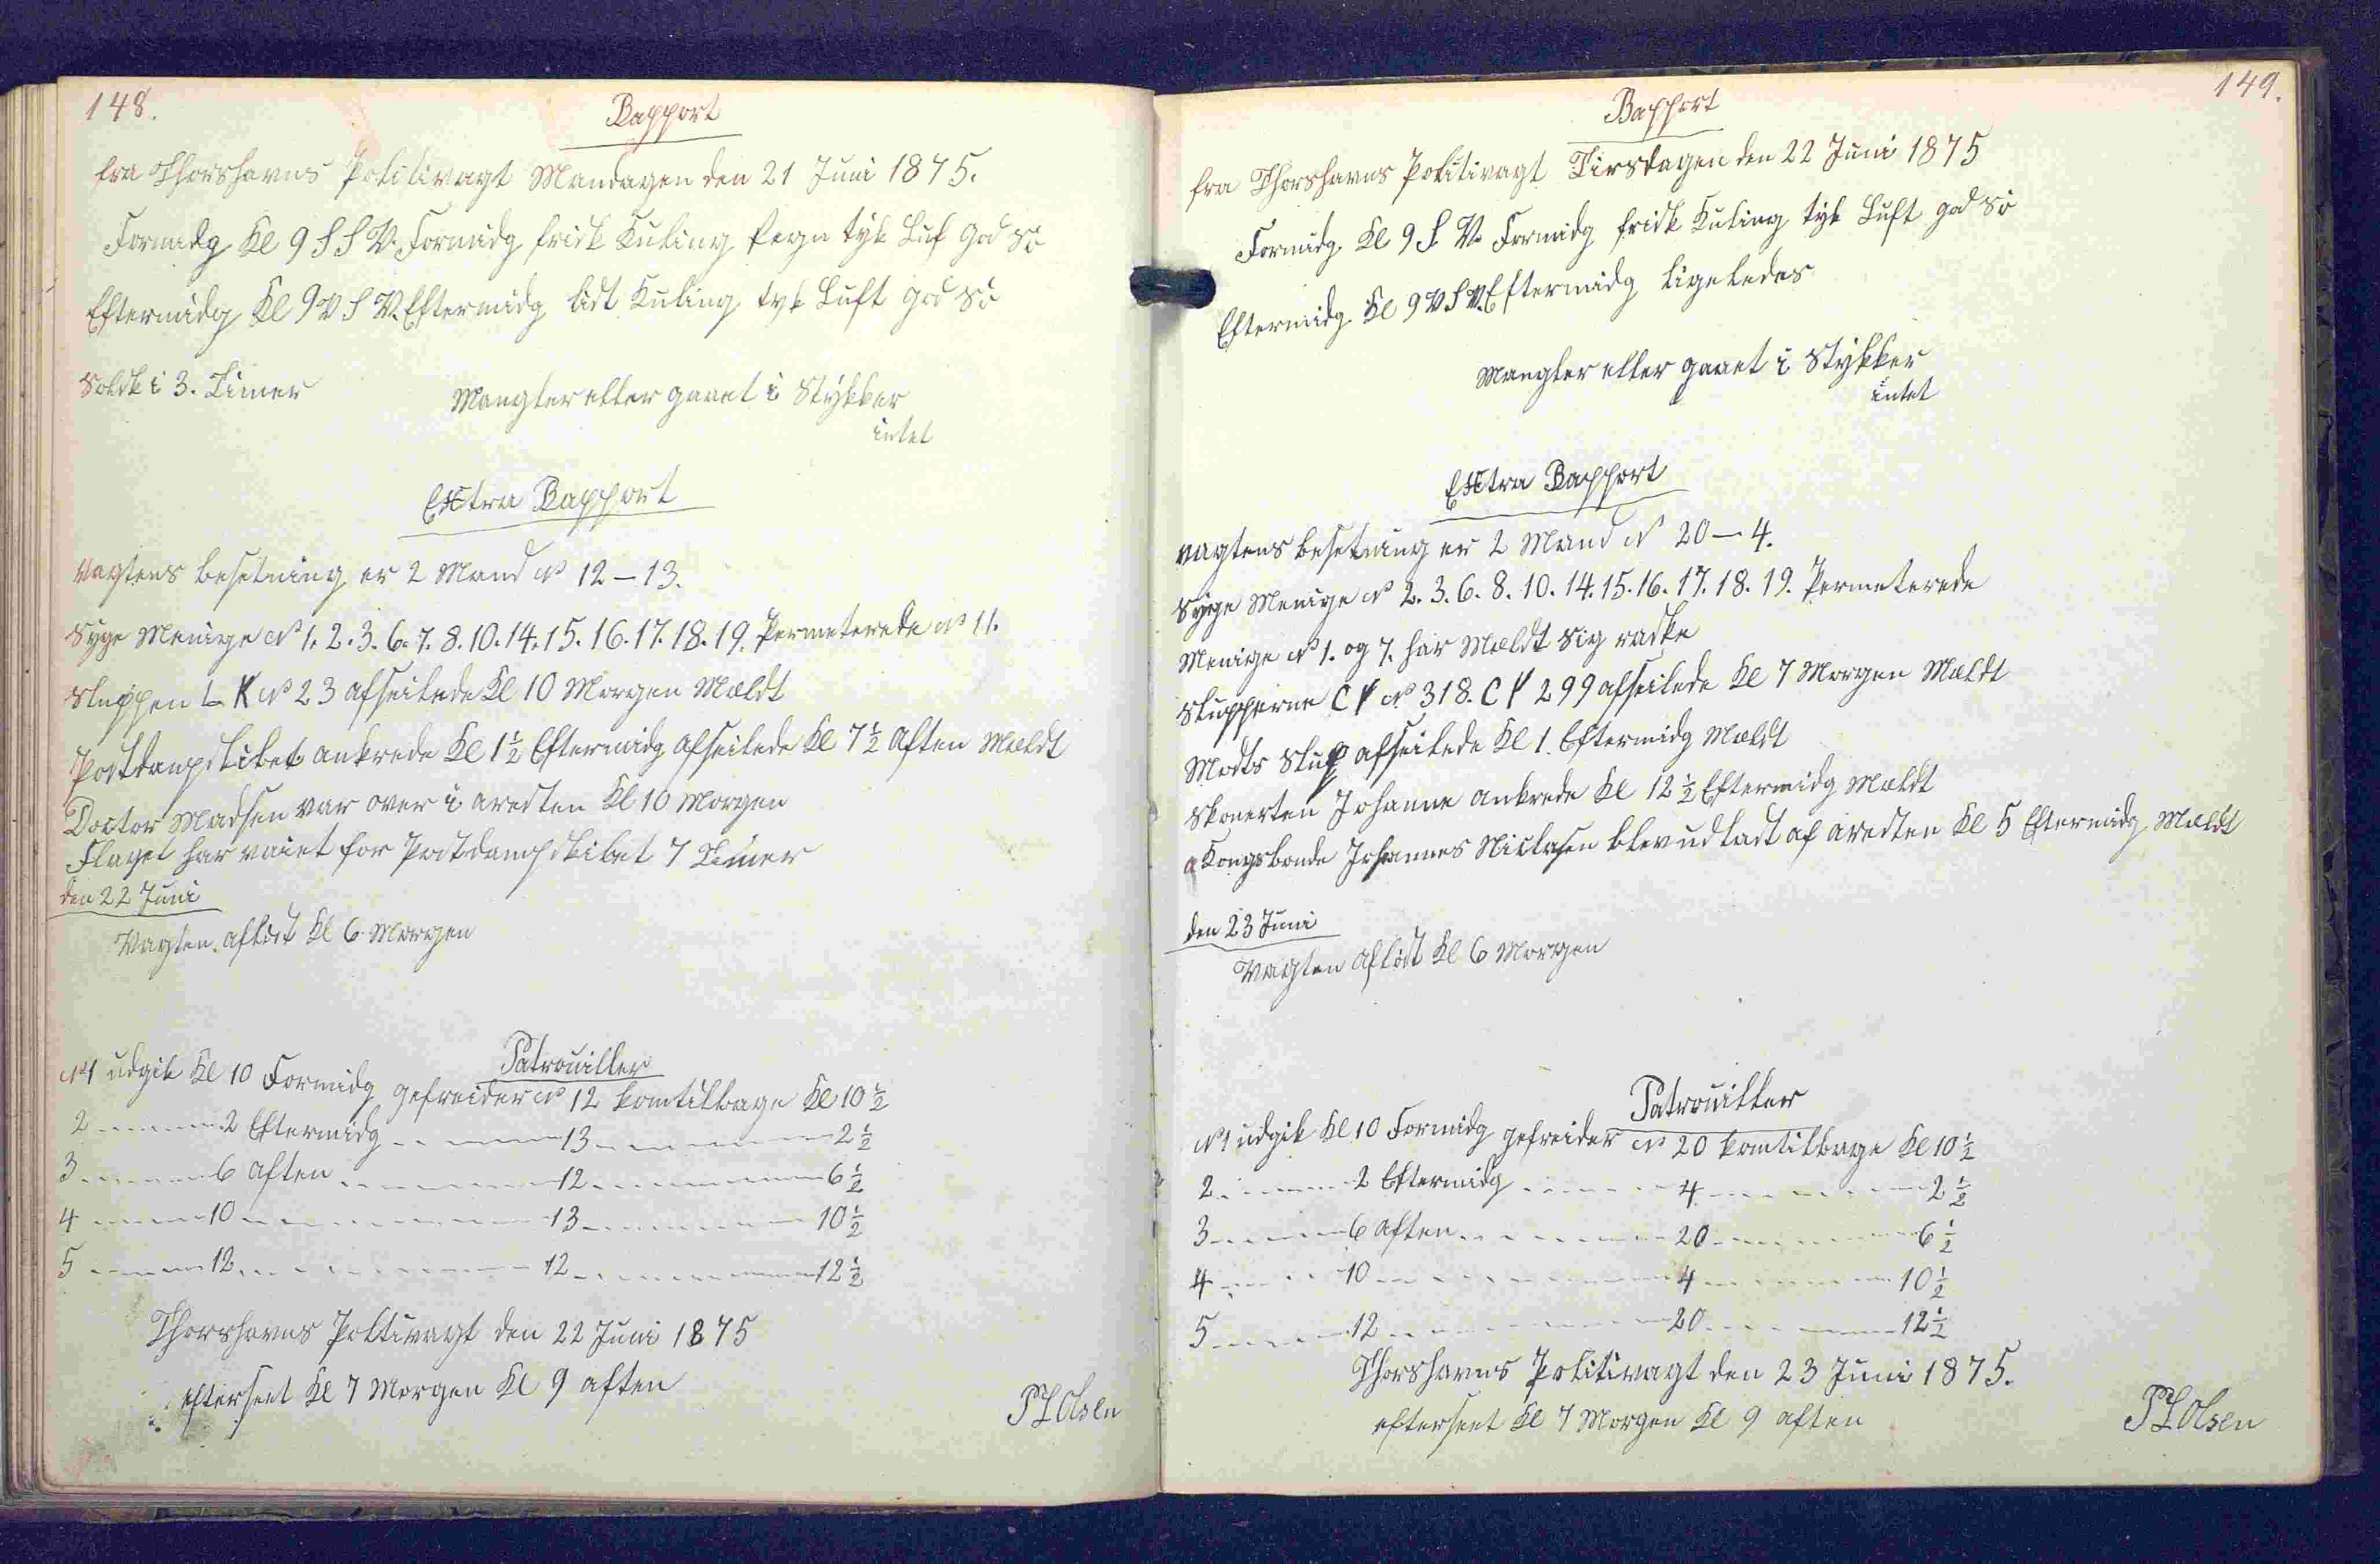 148.
Rapport
fra Thorshavns Politivagt Mandagen den 21 Juni 1875.
Formidg Kl 9 S S V. Formidg frisk Kuling Regn tyk Luf god Sö
Eftermidg Kl 9 V S V. Eftermidg lidt Kuling tyk Luft god Sö
Solsk i 3. Timer
Mangler eller gaaet i Stykker
intet
Extra Rapport
Vagtens besetning er 2 Mand No 12 - 13.
Syge Menige No 1. 2. 3. 6. 7. 8. 10. 14. 15. 16. 17. 18. 19. Permeterede No 11.
Sluppen L K No 23 afseilede Kl 10 Morgen Mældt
Postdampskibet ankrede Kl 1½ Eftermidg afseilede Kl 7½ Aften Mældt
Doctor Madsen var over i aresten Kl 10 Morgen
Flaget har vaiet for Postdampskibet 7 Timer
den 22 Juni
Vagten aflöst Kl 6 Morgen
Patrouiller
No 1 udgik Kl 10 Formidg gefreider No 12 komtilbage Kl 10½
2 - - - 2 Eftermidg - - - 13 - - - 2½
3 - - - 6 Aften - - - 12 - - - 6½
4 - - - 10 - - - 13 - - - 10½
5 - - - 12 - - - 12 - - - 12½
Thorshavns Poltivagt den 22 Juni 1875
efterseet Kl 7 Morgen Kl 9 aften
P L Olsen
149.
Rapport
fra Thorshavns Politivagt Tirsdagen den 22 Juni 1875
Formidg. Kl 9 S. V. Formidg frisk Kuling tyk Luft god Sö
Eftermidg. Kl 9 V S V. Eftermidg ligeledes
Mangler eller gaaet i Stykker
intet
Extra Rapport
Vagtens besetning er 2 Mand No 20 - 4.
Syge Menige No 2. 3. 6. 8. 10. 14. 15. 16. 17. 18. 19. Permeterede
Menige No 1. og 7. har Mældt sig raske
Slupperne No 318. 299 afseilede Kl 7 Morgen Mældt
Slup afseilede Kl 1. Eftermidg Mældt
Skonerten Johanne ankrede Kl 12½ Eftermidg Mældt
Kongsbonde Johannes Niclasen blev udladt af aresten Kl 5 Eftermidg Mældt
den 23 Juni
Vagten aflöst Kl 6 Morgen
Patrouiller
No 1 udgik Kl 10 Formidg gefreider No 20 komtilbage Kl 10½
2 - - - 2 Eftermidg - - - 4 - - - 2½
3 - - - 6 Aften - - - 20 - - - 6½
4 - - - 10 - - - 4 - - - 10½
5 - - - 12 - - - 20 - - - 12½
Thorshavns Politivagt den 23 Juni 1875.
efterseet Kl 7 Morgen Kl 9 aften
P L Olsen